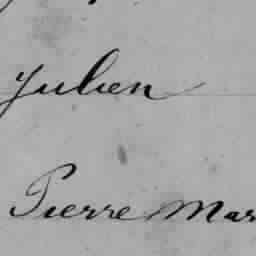 Julien
Pierre Mar